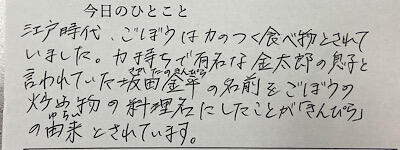 今日のひとこと
江戸時代、ごぼうは力のつく食べ物とされて
いました。力持ちで有名な金太郎の息子と
言われていた坂田金平の名前をごぼうの
炒め物の料理名にしたことが「きんぴら」
の由来とされています。